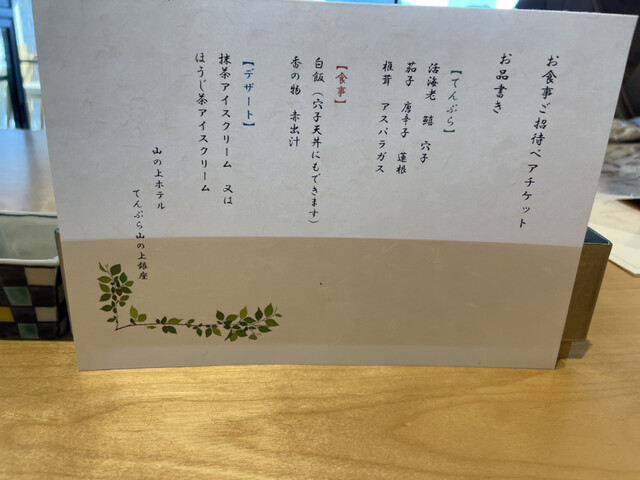 お食事ご招待ペアチケット
お品書き
【てんぷら】
活海老 鱚 穴子
茄子 唐辛子 蓮根
椎茸 アスパラガス
【食事】
白飯(穴子天丼にもできます)
香の物 赤出汁
【デザート】
抹茶アイスクリーム 又は
ほうじ茶アイスクリーム
山の上ホテル
てんぷら山の上銀座